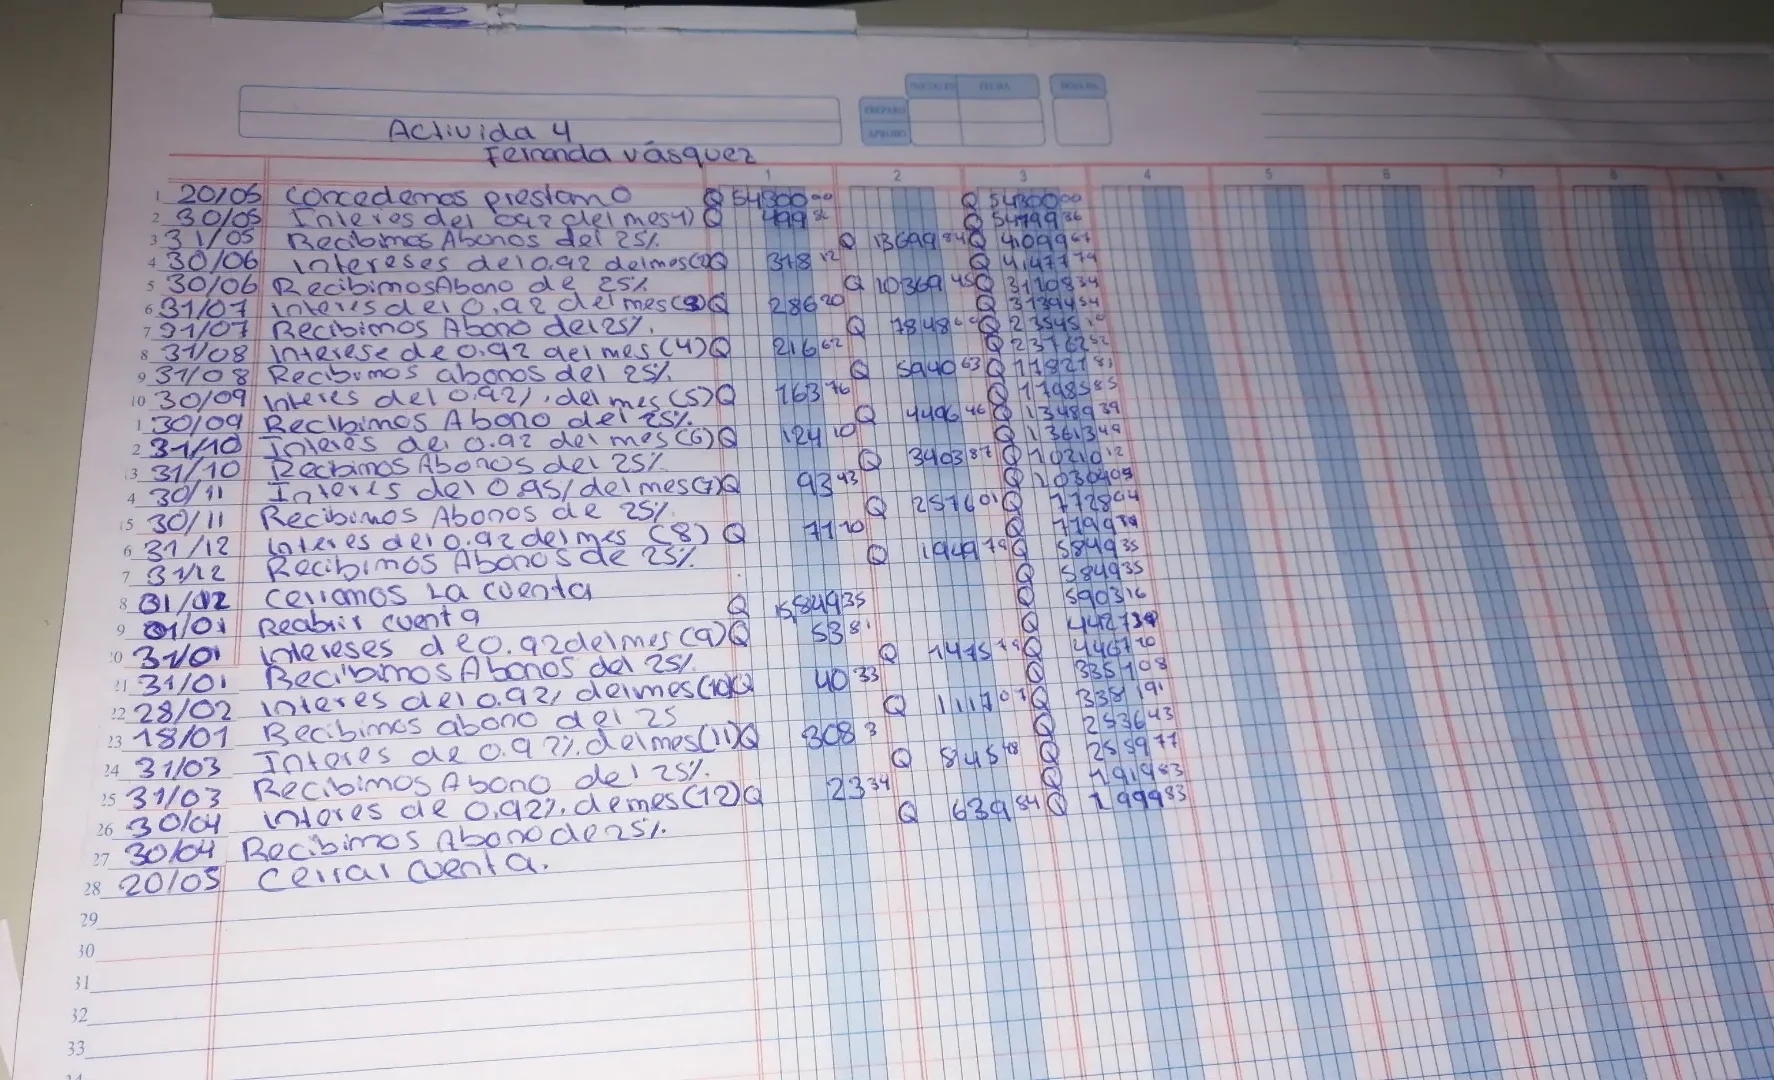 Activida 4
Fernanda vásquez
PREPARO
APROBO
FECHA
1 2 3 4 5 6 7 8
1 20/05 Concedemos prestamo Q 54300 00 Q 54300 00
2 30/05 Interes del 0.92 del mes 1) Q 499 56 Q 54799 36
3 31/05 Recibimos Abonos del 25% Q 13699 84 Q 41099 61
4 30/06 intereses del 0.92 del mes (2) Q 378 12 Q 41477 74
5 30/06 Recibimos Abono de 25% Q 10369 45 Q 31108 34
6 31/07 interes del 0.92 del mes (3) Q 286 20 Q 31394 54
7 31/07 Recibimos Abono del 25%. Q 7848 Q 23545
8 31/08 Interese de 0.92 del mes (4) Q 216 62 Q 23762 52
9 31/08 Recibimos abonos del 25%. Q 5940 63 Q 17821 81
10 30/09 Interes del 0.92%, del mes (5) Q 163 76 Q 17985 85
1 30/09 Recibimos Abono del 25% Q 4496 46 Q 13489 39
2 31/10 Interés del 0.92 del mes (6) Q 124 10 Q 13613 49
13 31/10 Recibimos Abonos del 25% Q 3403 87 Q 10210 12
4 30/11 Interes del 0.95/ del mes (7) Q 93 93 Q 10304 05
15 30/11 Recibimos Abonos de 25% Q 2576 01 Q 7728 04
6 31/12 interes del 0.92 del mes (8) Q 71 10 Q 7799
7 31/12 Recibimos Abonos de 25% Q 1949 79 Q 5849 35
8 01/02 Cerramos La cuenta Q 5849 35
9 01/01 Reabrir cuenta Q 5849 35 Q 5903 16
20 31/01 intereses de 0.92 del mes (9) Q 53 81 Q 4427 39
21 31/01 Recibimos Abonos del 25% Q 1475 79 Q 4467 70
22 28/02 interes del 0.92, del mes (10) Q 40 33 Q 3351 08
23 18/01 Recibimos abono del 25 Q 1117 07 Q 338 191
24 31/03 Interes de 0.92%. del mes (11) Q 308 3 Q 2536 43
25 31/03 Recibimos Abono del 25%. Q 845 Q 2559 77
26 30/04 interes de 0.92%. de mes (12) Q 23 34 Q 1919 83
27 30/04 Recibimos Abono de 25%. Q 639 84 Q 1999 83
28 20/05 Cerrar cuenta.
29
30
31
32
33